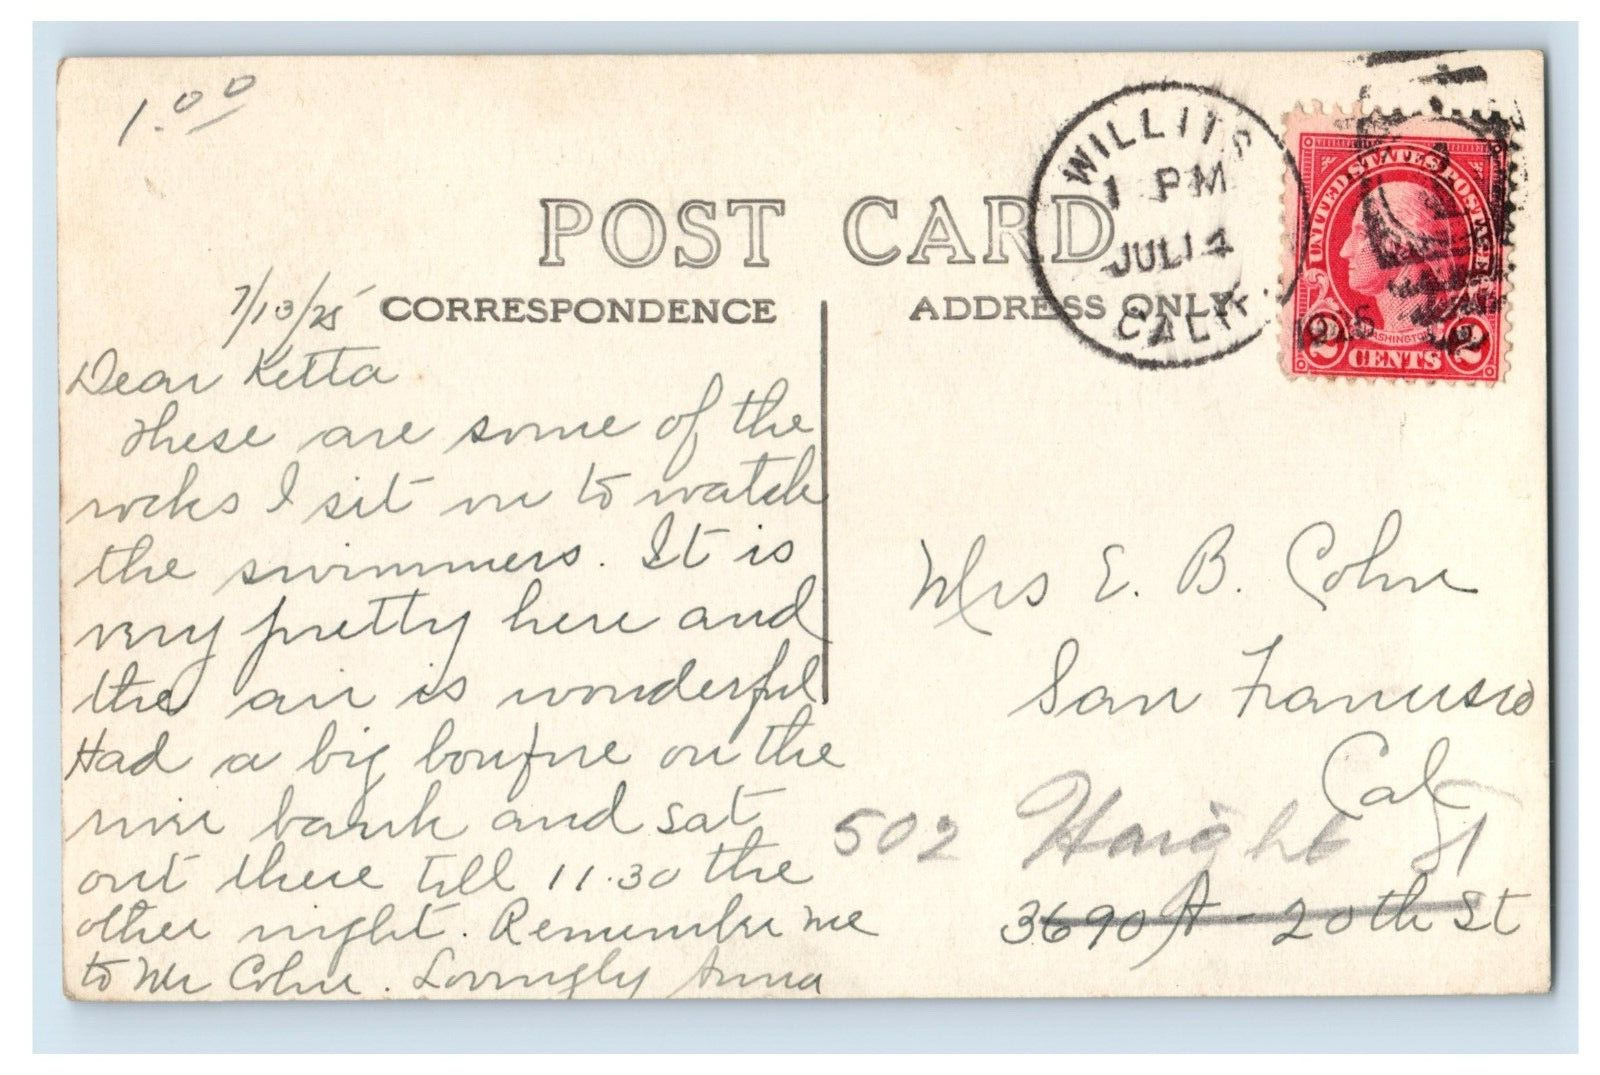 1.00
POST CARD
WILLITS
1 PM
JUL 14
1925
CALIF.
UNITED STATES POSTAGE
WASHINGTON
2 CENTS 2
CORRESPONDENCE
ADDRESS ONLY
7/13/25
Dear Ketta
These are some of the
rocks I sit on to watch
the swimmers. It is
very pretty here and
the air is wonderful
Had a big bonfire on the
river bank and sat
out there till 11.30 the
other night. Remember me
to Mr Cohn. Lovingly Anna
Mrs E. B. Cohn
San Francisco
Cal
502 Haight St
3690 A - 20th St